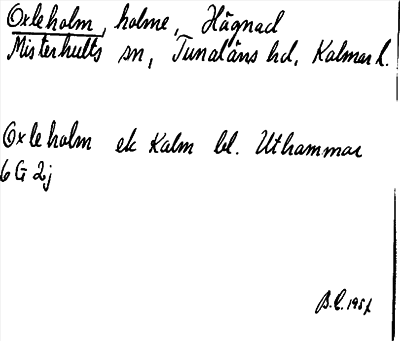 Oxleholm, holme, Hägnad
Misterhults sn, Tunaläns hd, Kalmar l.
Oxleholm ek Kalm bl. Uthammar
6 G 2j
B.L. 1957